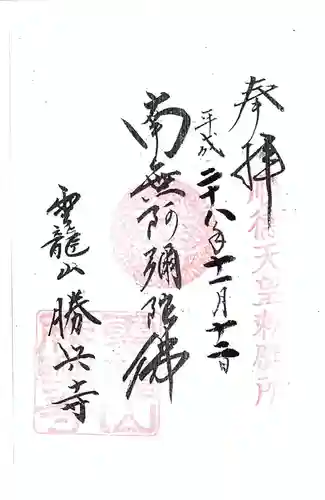 奉拝
順徳天皇勅願所
平成二十八年十一月十二日
南無阿彌陀佛
雲龍山勝興寺